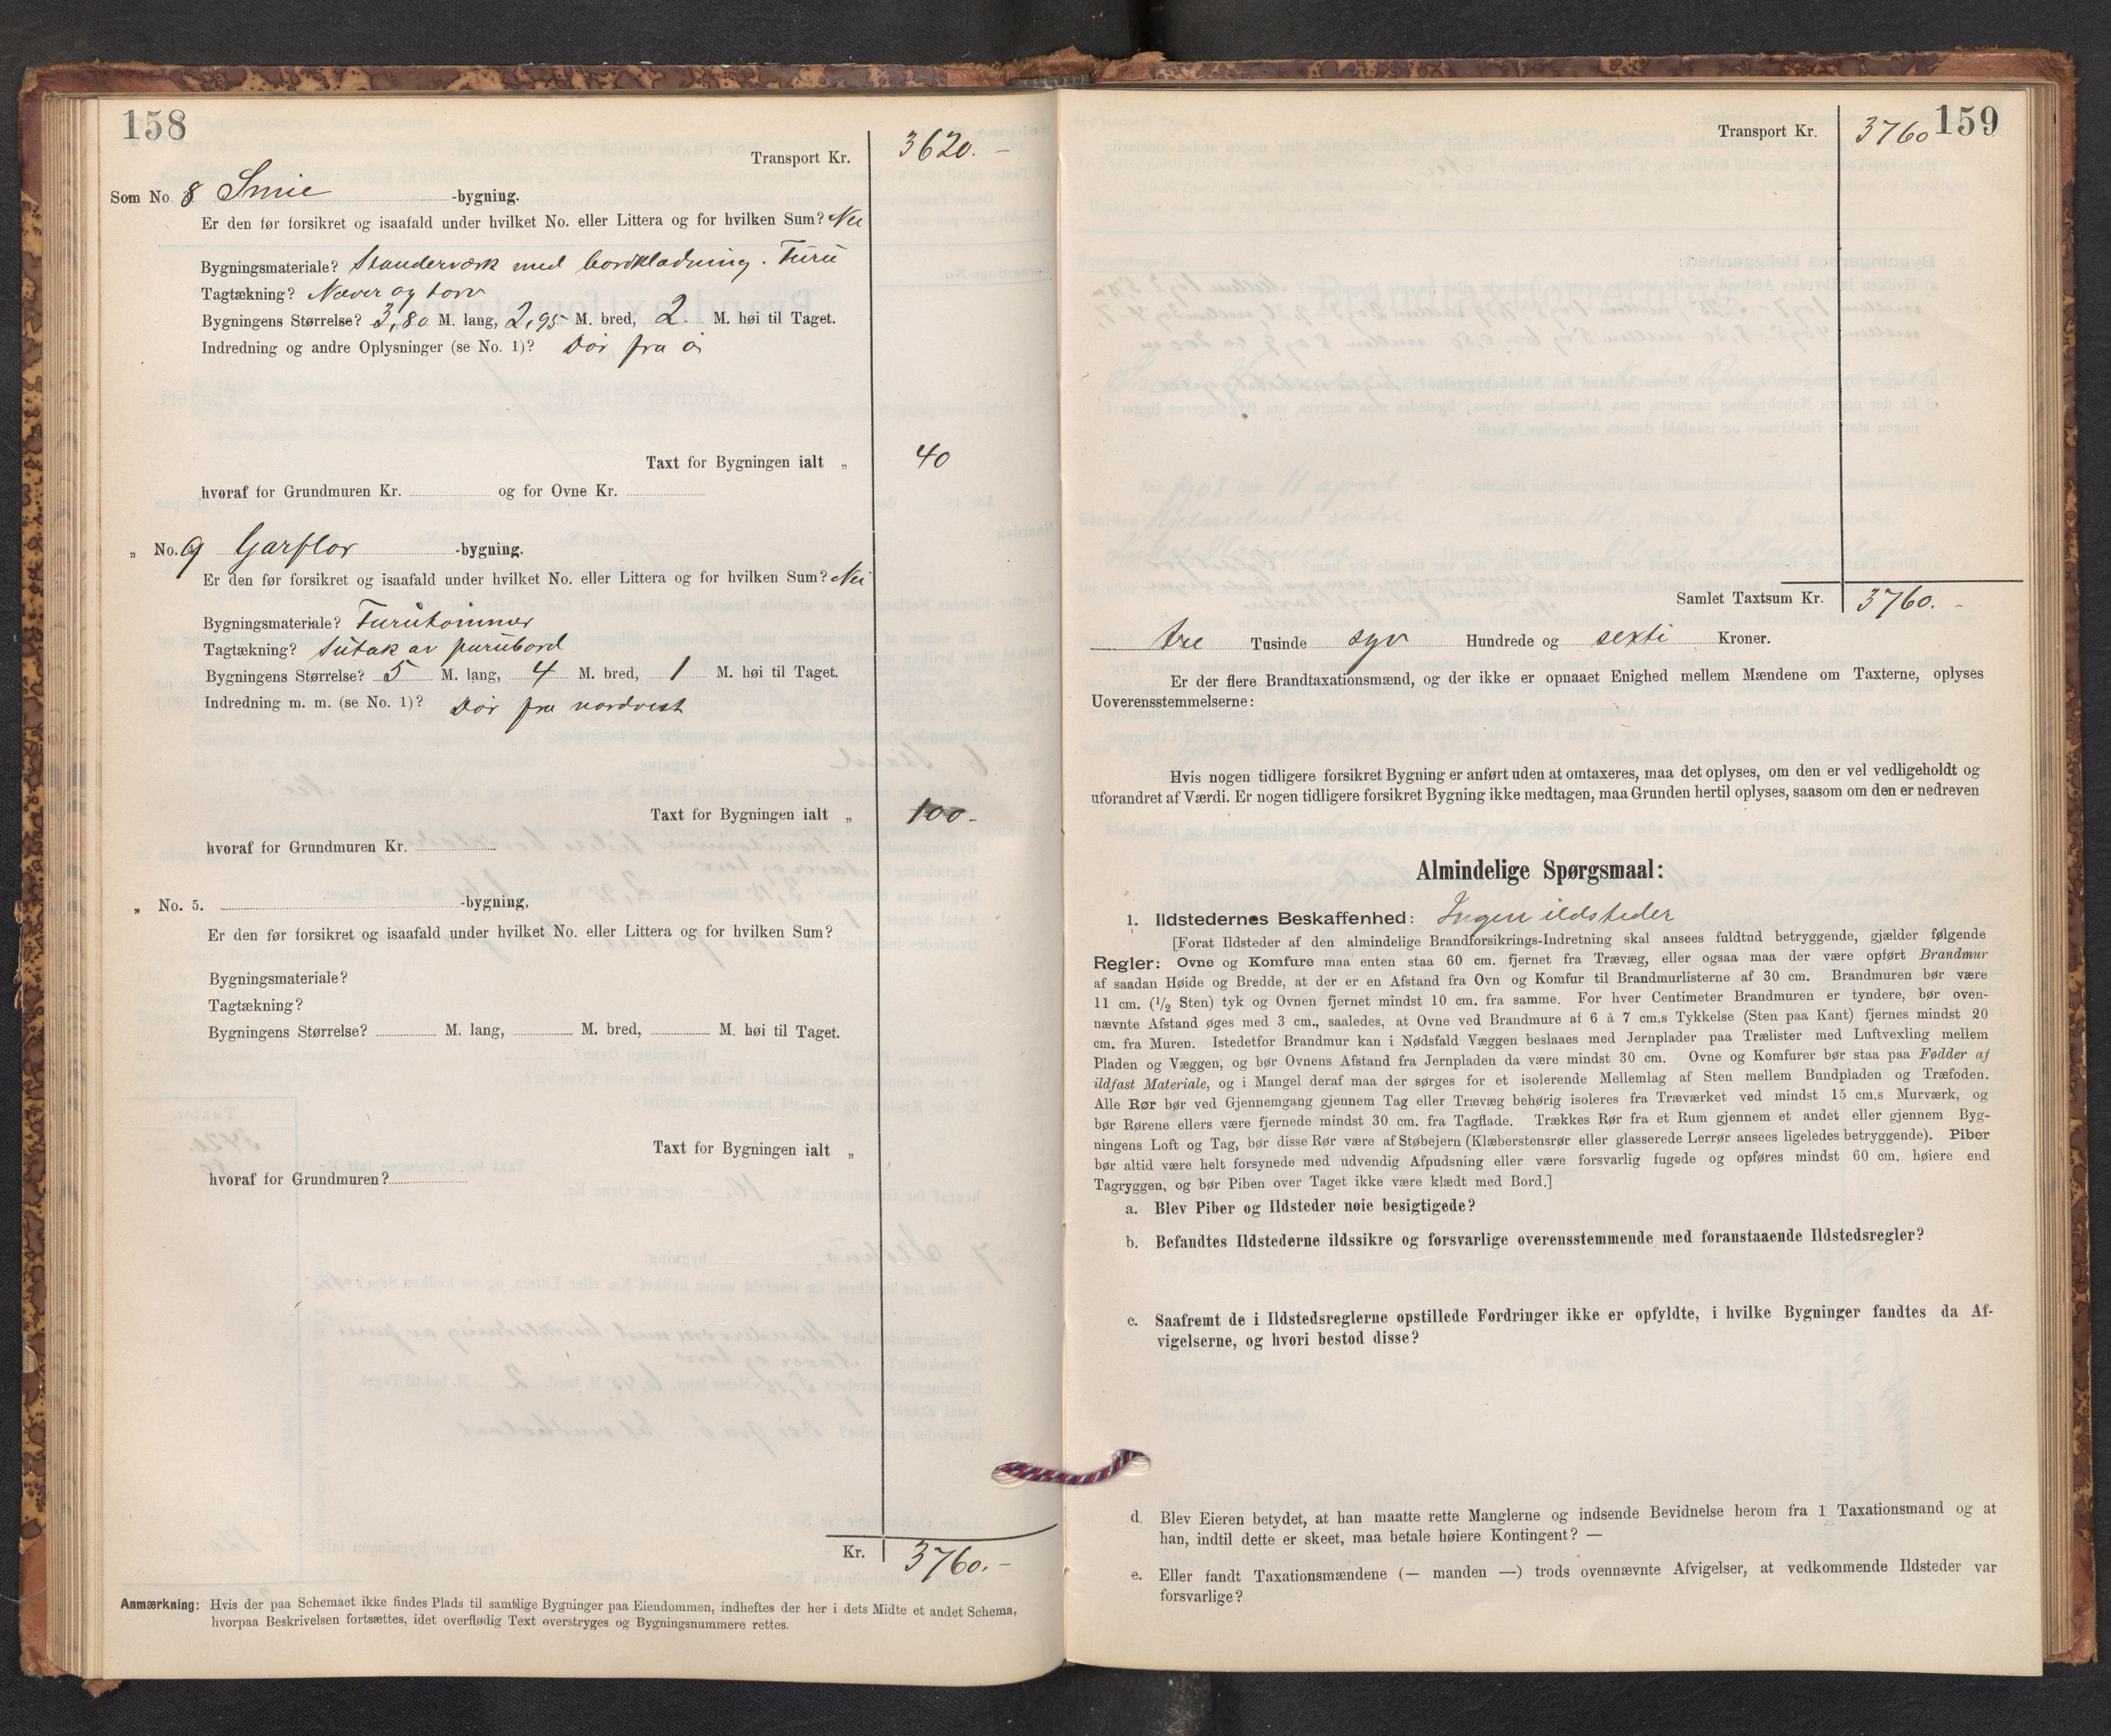 158
Transport Kr. 3620.-
Som No. 8 Smie -bygning.
Er den før forsikret og isaafald under hvilket No. eller Littera og for hvilken Sum? Nei
Bygningsmateriale? Standerværk med bordklædning. Furu
Tagtækning? Næver og torv
Bygningens Størrelse? 3,80 M. lang, 2,95 M. bred, 2 M. høi til Taget.
Indredning og andre Oplysninger (se No. 1)? Dør fra ø
Taxt for Bygningen ialt „ 40
hvoraf for Grundmuren Kr. og for Ovne Kr.
„ No. 9 Garflor -bygning.
Er den før forsikret og isaafald under hvilket No. eller Littera og for hvilken Sum? Nei
Bygningsmateriale? Furutømmer
Tagtækning? sutak av furubord
Bygningens Størrelse? 5 M. lang, 4 M. bred, 1 M. høi til Taget.
Indredning m. m. (se No. 1)? Dør fra nordvest
Taxt for Bygningen ialt „ 100-
hvoraf for Grundmuren Kr.
„ No. 5. -bygning.
Er den før forsikret og isaafald under hvilket No. eller Littera og for hvilken Sum?
Bygningsmateriale?
Tagtækning?
Bygningens Størrelse? M. lang, M. bred, M. høi til Taget.
Taxt for Bygningen ialt „
hvoraf for Grundmuren?
Kr. 3760.-
Anmærkning: Hvis der paa Schemaet ikke findes Plads til samtlige Bygninger paa Eiendommen, indheftes der her i dets Midte et andet Schema,
hvorpaa Beskrivelsen fortsættes, idet overflødig Text overstryges og Bygningsnummere rettes.
159
Transport Kr. 3760
Samlet Taxtsum Kr. 3760.-
tre Tusinde syv Hundrede og sexti Kroner.
Er der flere Brandtaxationsmænd, og der ikke er opnaaet Enighed mellem Mændene om Taxterne, oplyses
Uoverensstemmelserne:
Hvis nogen tidligere forsikret Bygning er anført uden at omtaxeres, maa det oplyses, om den er vel vedligeholdt og
uforandret af Værdi. Er nogen tidligere forsikret Bygning ikke medtagen, maa Grunden hertil oplyses, saasom om den er nedreven
Almindelige Spørgsmaal:
1. Ildstedernes Beskaffenhed: Ingen ildsteder
[Forat Ildsteder af den almindelige Brandforsikrings-Indretning skal ansees fuldtud betryggende, gjælder følgende
Regler: Ovne og Komfure maa enten staa 60 cm. fjernet fra Trævæg, eller ogsaa maa der være opført Brandmur
af saadan Høide og Bredde, at der er en Afstand fra Ovn og Komfur til Brandmurlisterne af 30 cm. Brandmuren bør være
11 cm. (1/2 Sten) tyk og Ovnen fjernet mindst 10 cm. fra samme. For hver Centimeter Brandmuren er tyndere, bør oven-
nævnte Afstand øges med 3 cm., saaledes, at Ovne ved Brandmure af 6 à 7 cm.s Tykkelse (Sten paa Kant) fjernes mindst 20
cm. fra Muren. Istedetfor Brandmur kan i Nødsfald Væggen beslaaes med Jernplader paa Trælister med Luftvexling mellem
Pladen og Væggen, og bør Ovnens Afstand fra Jernpladen da være mindst 30 cm. Ovne og Komfurer bør staa paa Fødder af
ildfast Materiale, og i Mangel deraf maa der sørges for et isolerende Mellemlag af Sten mellem Bundpladen og Træfoden.
Alle Rør bør ved Gjennemgang gjennem Tag eller Trævæg behørig isoleres fra Træværket ved mindst 15 cm.s Murværk, og
bør Rørene ellers være fjernede mindst 30 cm. fra Tagflade. Trækkes Rør fra et Rum gjennem et andet eller gjennem Byg-
ningens Loft og Tag, bør disse Rør være af Støbejern (Klæberstensrør eller glasserede Lerrør ansees ligeledes betryggende). Piber
bør altid være helt forsynede med udvendig Afpudsning eller være forsvarlig fugede og opføres mindst 60 cm. høiere end
Tagryggen, og bør Piben over Taget ikke være klædt med Bord.]
a. Blev Piber og Ildsteder nøie besigtigede?
b. Befandtes Ildstederne ildssikre og forsvarlige overensstemmende med foranstaaende Ildstedsregler?
c. Saafremt de i Ildstedsreglerne opstillede Fordringer ikke er opfyldte, i hvilke Bygninger fandtes da Af-
vigelserne, og hvori bestod disse?
d. Blev Eieren betydet, at han maatte rette Manglerne og indsende Bevidnelse herom fra 1 Taxationsmand og at
han, indtil dette er skeet, maa betale høiere Kontingent? —
e. Eller fandt Taxationsmændene (— manden —) trods ovennævnte Afvigelser, at vedkommende Ildsteder var
forsvarlige?